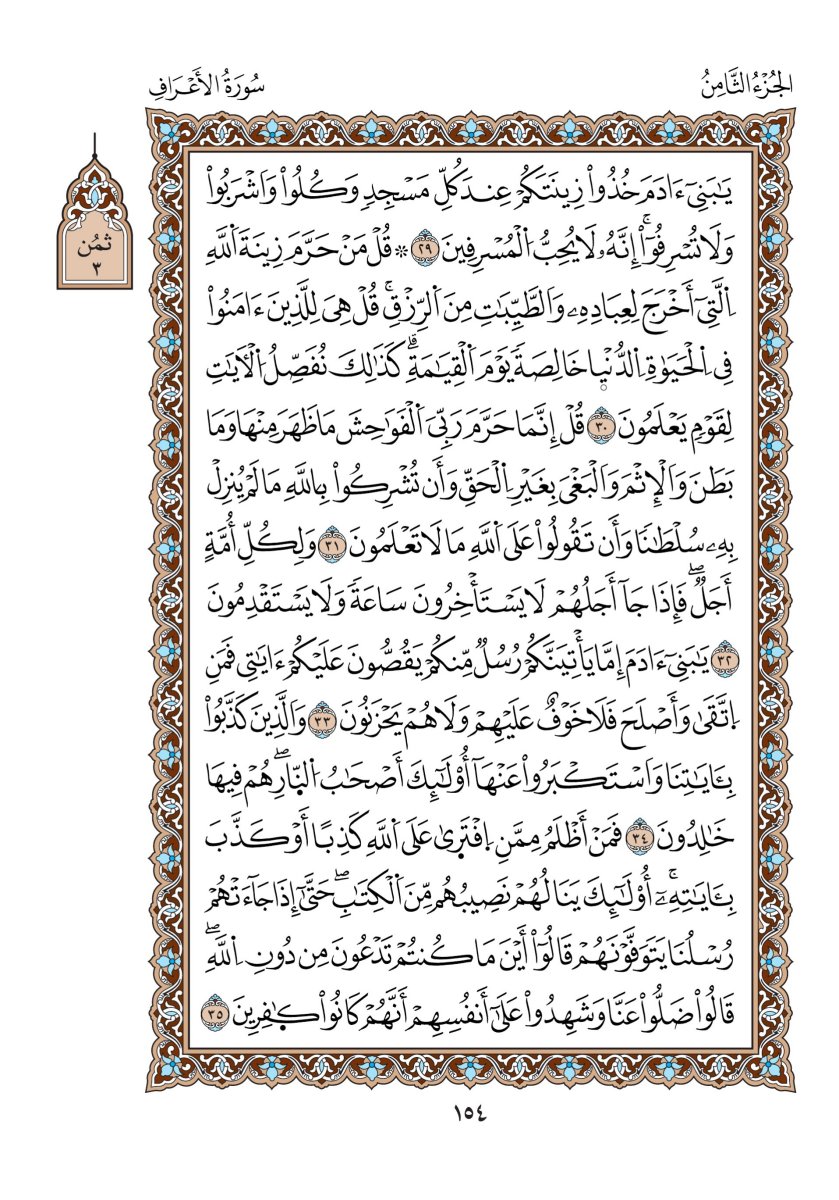 الجُزْءُ الثَّامِنُ
سُورَةُ الأَعْرَافِ
ثُمُن
٣
يَٰبَنِيٓ ءَادَمَ خُذُواْ زِينَتَكُمْ عِندَ كُلِّ مَسْجِدٖ وَكُلُواْ وَاشْرَبُواْ
وَلَا تُسْرِفُوٓاْۚ إِنَّهُۥ لَا يُحِبُّ اُلْمُسْرِفِينَ ٢٩ * قُلْ مَنْ حَرَّمَ زِينَةَ اَللَّهِ
اِلَّتِيٓ أَخْرَجَ لِعِبَادِهِۦ وَالطَّيِّبَٰتِ مِنَ اَلرِّزْقِۚ قُلْ هِيَ لِلَّذِينَ ءَامَنُواْ
فِي اِلْحَيَوٰةِ اِلدُّنْيٜا خَالِصَةٗ يَوْمَ اَلْقِيَٰمَةِۗ كَذَٰلِكَ نُفَصِّلُ اُلْأٓيَٰتِ
لِقَوْمٖ يَعْلَمُونَ ٣٠ قُلْ إِنَّمَا حَرَّمَ رَبِّيَ اَلْفَوَٰحِشَ مَا ظَهَرَ مِنْهَا وَمَا
بَطَنَ وَالْإِثْمَ وَالْبَغْيَ بِغَيْرِ اِلْحَقِّ وَأَن تُشْرِكُواْ بِاللَّهِ مَا لَمْ يُنزِلْ
بِهِۦ سُلْطَٰنٗا وَأَن تَقُولُواْ عَلَى اَللَّهِ مَا لَا تَعْلَمُونَ ٣١ وَلِكُلِّ أُمَّةٍ
أَجَلٞۖ فَإِذَا جَآ أَجَلُهُمْ لَا يَسْتَأْخِرُونَ سَاعَةٗ وَلَا يَسْتَقْدِمُونَ
٣٢ يَٰبَنِيٓ ءَادَمَ إِمَّا يَأْتِيَنَّكُمْ رُسُلٞ مِّنكُمْ يَقُصُّونَ عَلَيْكُمْ ءَايَٰتِي فَمَنِ
اِتَّقَىٰ وَأَصْلَحَ فَلَا خَوْفٌ عَلَيْهِمْ وَلَا هُمْ يَحْزَنُونَ ٣٣ وَالَّذِينَ كَذَّبُواْ
بِـَٔايَٰتِنَا وَاسْتَكْبَرُواْ عَنْهَآ أُوْلَٰٓئِكَ أَصْحَٰبُ اُلنّ۪ارِۖ هُمْ فِيهَا
خَٰلِدُونَ ٣٤ فَمَنْ أَظْلَمُ مِمَّنِ اِفْتَر۪ىٰ عَلَى اَللَّهِ كَذِبًا أَوْ كَذَّبَ
بِـَٔايَٰتِهِۦٓۚ أُوْلَٰٓئِكَ يَنَالُهُمْ نَصِيبُهُم مِّنَ اَلْكِتَٰبِۖ حَتَّىٰٓ إِذَا جَآءَتْهُمْ
رُسْلُنَا يَتَوَفَّوْنَهُمْ قَالُوٓاْ أَيْنَ مَا كُنتُمْ تَدْعُونَ مِن دُونِ اِللَّهِۖ
قَالُواْ ضَلُّواْ عَنَّا وَشَهِدُواْ عَلَىٰٓ أَنفُسِهِمْ أَنَّهُمْ كَانُواْ كٰٜفِرِينَ ٣٥
١٥٤